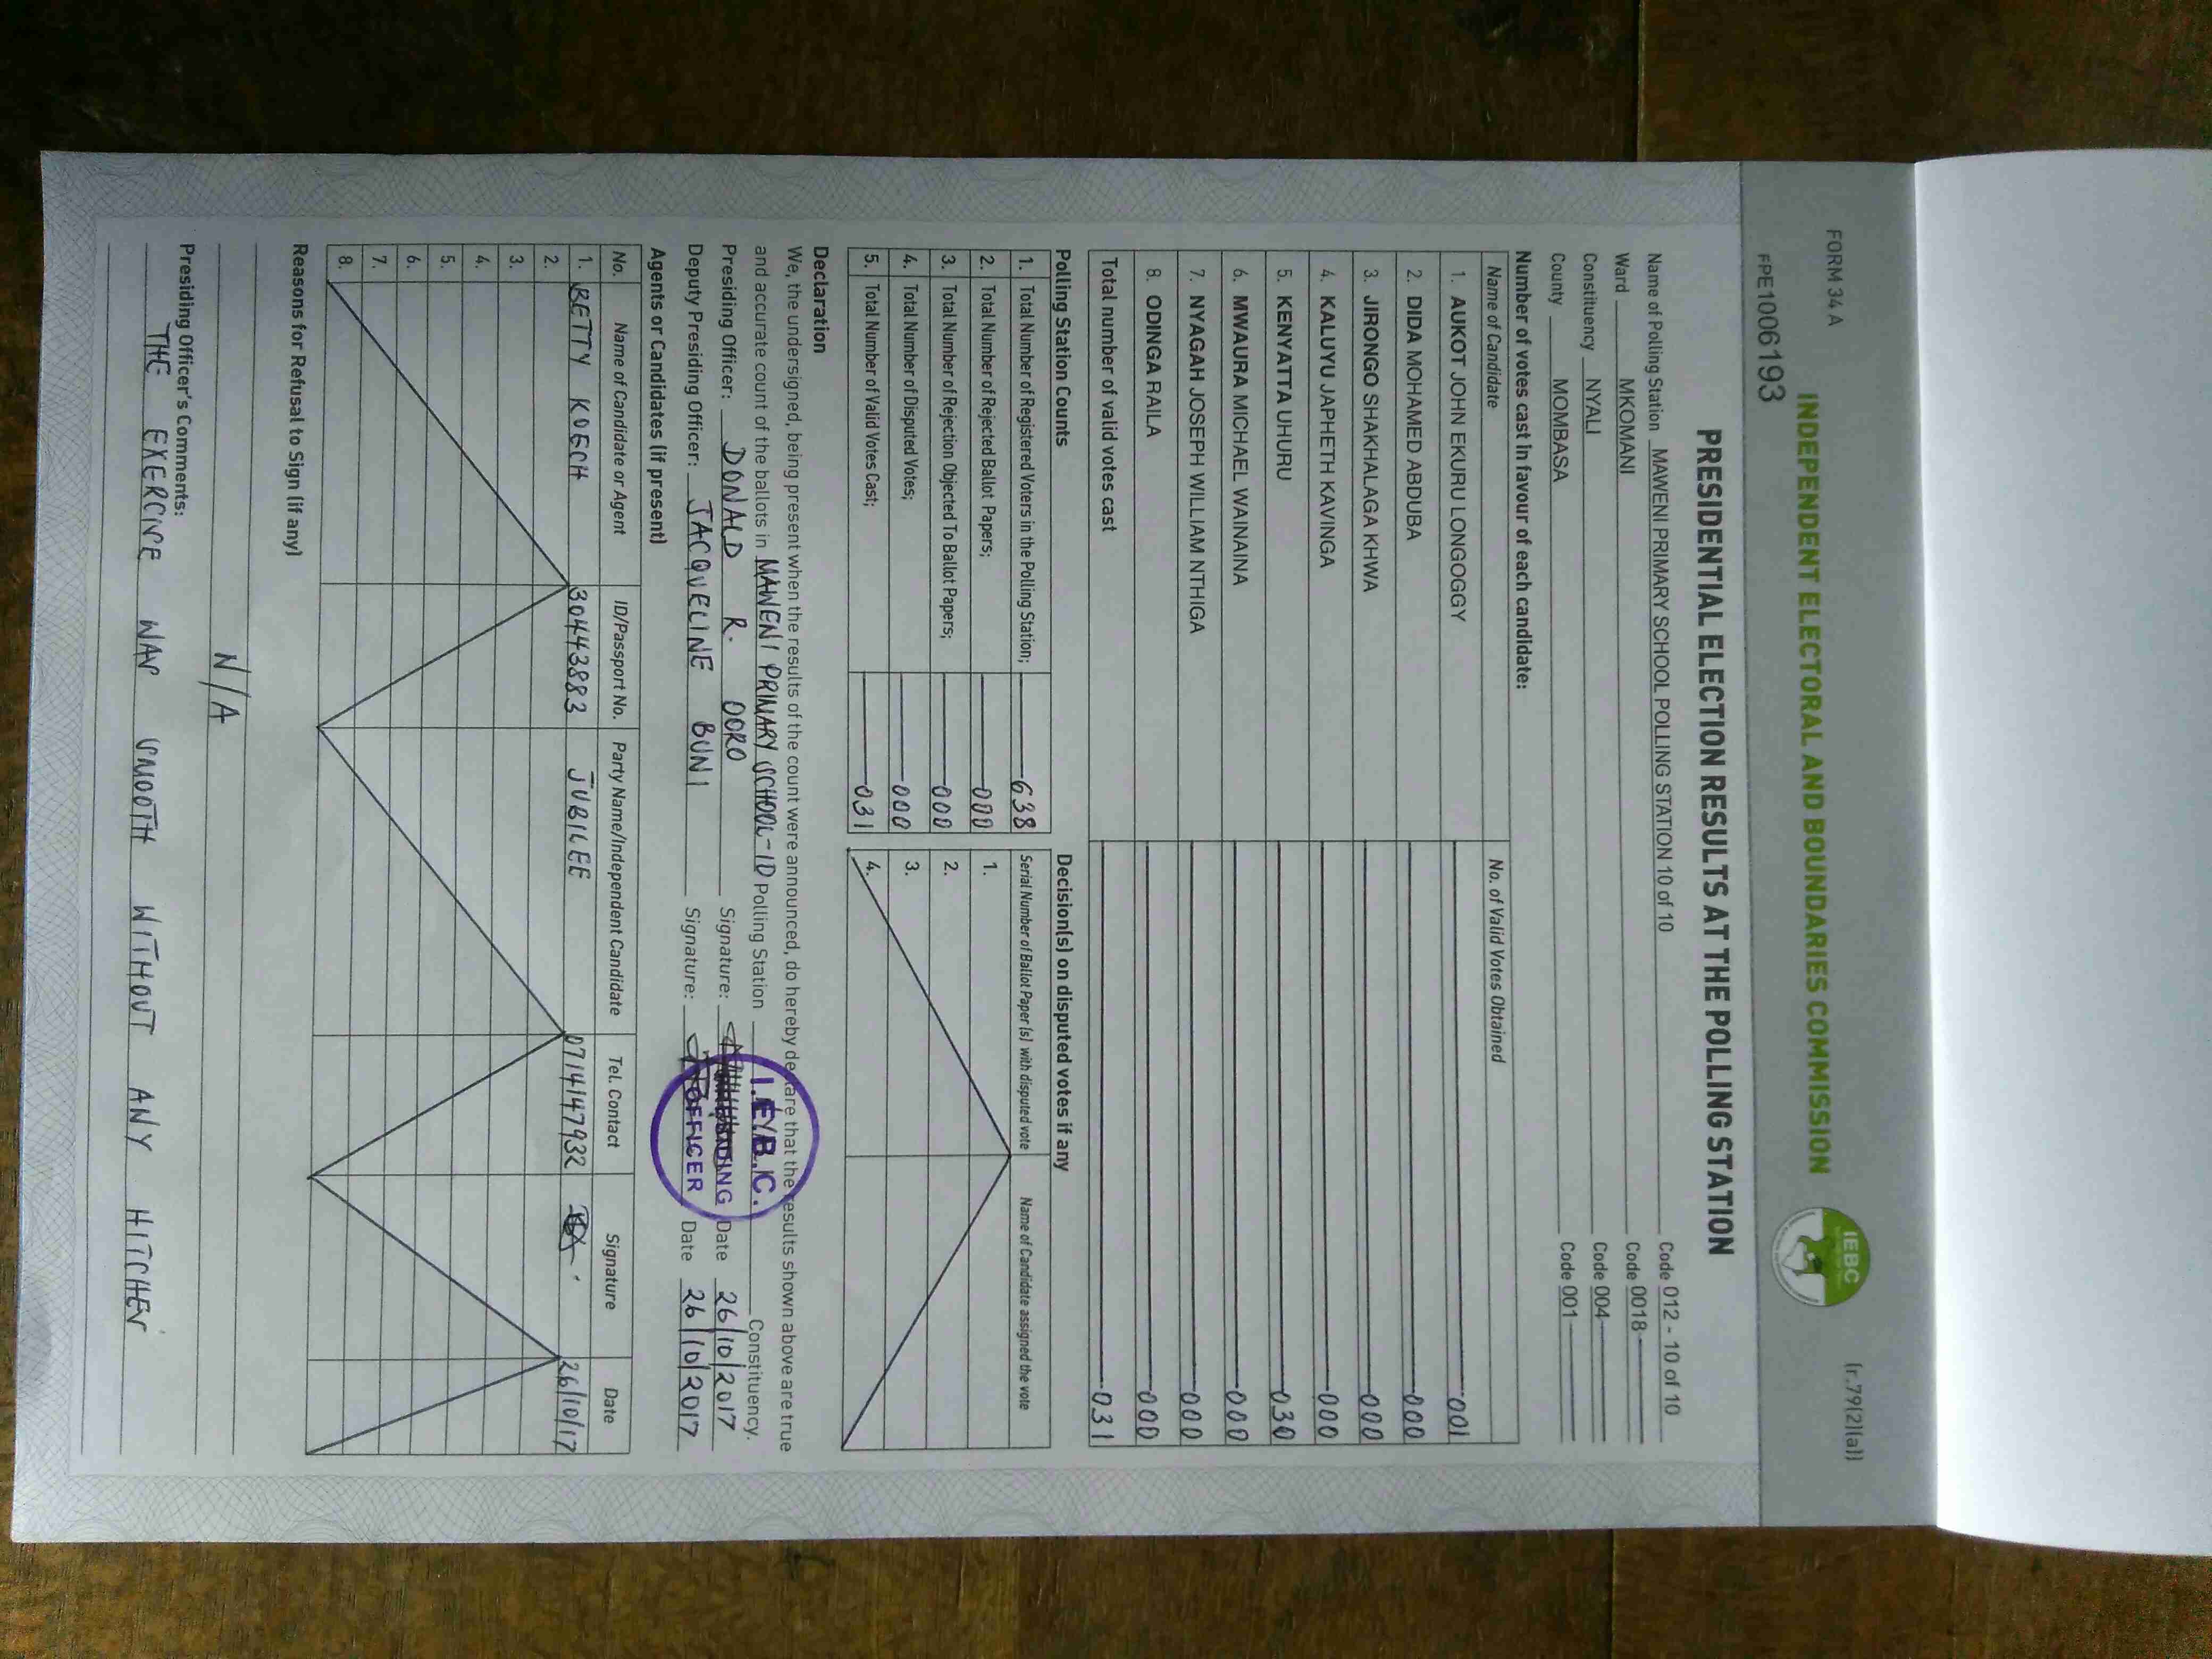 FORM 34 A
(r.79(2)(a))
INDEPENDENT ELECTORAL AND BOUNDARIES COMMISSION
IEBC
FPE1006193
PRESIDENTIAL ELECTION RESULTS AT THE POLLING STATION
Name of Polling Station MAWENI PRIMARY SCHOOL POLLING STATION 10 of 10 Code 012 - 10 of 10
Ward MKOMANI Code 0018
Constituency NYALI Code 004
County MOMBASA Code 001
Number of votes cast in favour of each candidate:
Name of Candidate No. of Valid Votes Obtained
1. AUKOT JOHN EKURU LONGOGGY 001
2. DIDA MOHAMED ABDUBA 000
3. JIRONGO SHAKHALAGA KHWA 000
4. KALUYU JAPHETH KAVINGA 000
5. KENYATTA UHURU 030
6. MWAURA MICHAEL WAINAINA 000
7. NYAGAH JOSEPH WILLIAM NTHIGA 000
8. ODINGA RAILA 000
Total number of valid votes cast 031
Polling Station Counts
1. Total Number of Registered Voters in the Polling Station; 638
2. Total Number of Rejected Ballot Papers; 000
3. Total Number of Rejection Objected To Ballot Papers; 000
4. Total Number of Disputed Votes; 000
5. Total Number of Valid Votes Cast; 031
Decision(s) on disputed votes if any
Serial Number of Ballot Paper (s) with disputed vote Name of Candidate assigned the vote
1.
2.
3.
4.
Declaration
We, the undersigned, being present when the results of the count were announced, do hereby declare that the results shown above are true
and accurate count of the ballots in MAWENI PRIMARY SCHOOL-10 Polling Station Constituency.
Presiding Officer: DONALD R. OORO Signature: Date 26/10/2017
Deputy Presiding Officer: JACQUELINE BUNI Signature: Date 26/10/2017
I.E.B.C.
PRESIDING
OFFICER
Agents or Candidates (if present)
No. Name of Candidate or Agent ID/Passport No. Party Name/Independent Candidate Tel. Contact Signature Date
1. BETTY KOECH 30443883 JUBILEE 0714147932 26/10/17
2.
3.
4.
5.
6.
7.
8.
Reasons for Refusal to Sign (if any)
N/A
Presiding Officer's Comments:
THE EXERCISE WAS SMOOTH WITHOUT ANY HITCHES